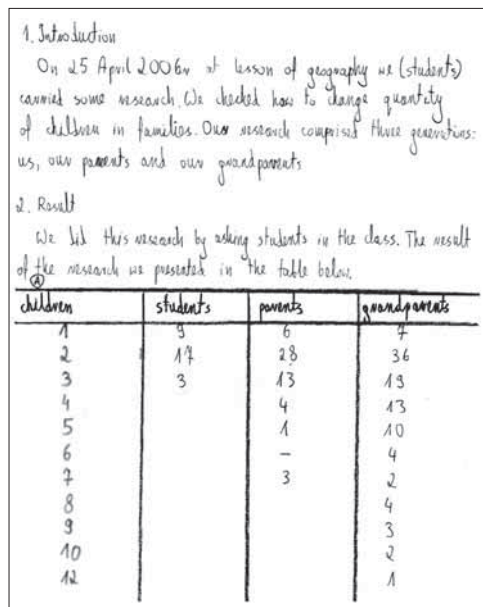 1. Introduction
On 25 April 2006r at lesson of geography we (students)
carried some research. We checked how to change quantity
of children in families. Our research comprised three generations:
us, our parents and our grandparents
2. Result
We did this research by asking students in the class. The result
of the research we presented in the table below.
A
children students parents grandparents
1 9 6 7
2 17 28 36
3 3 13 19
4 4 13
5 1 10
6 – 4
7 3 2
8 4
9 3
10 2
12 1